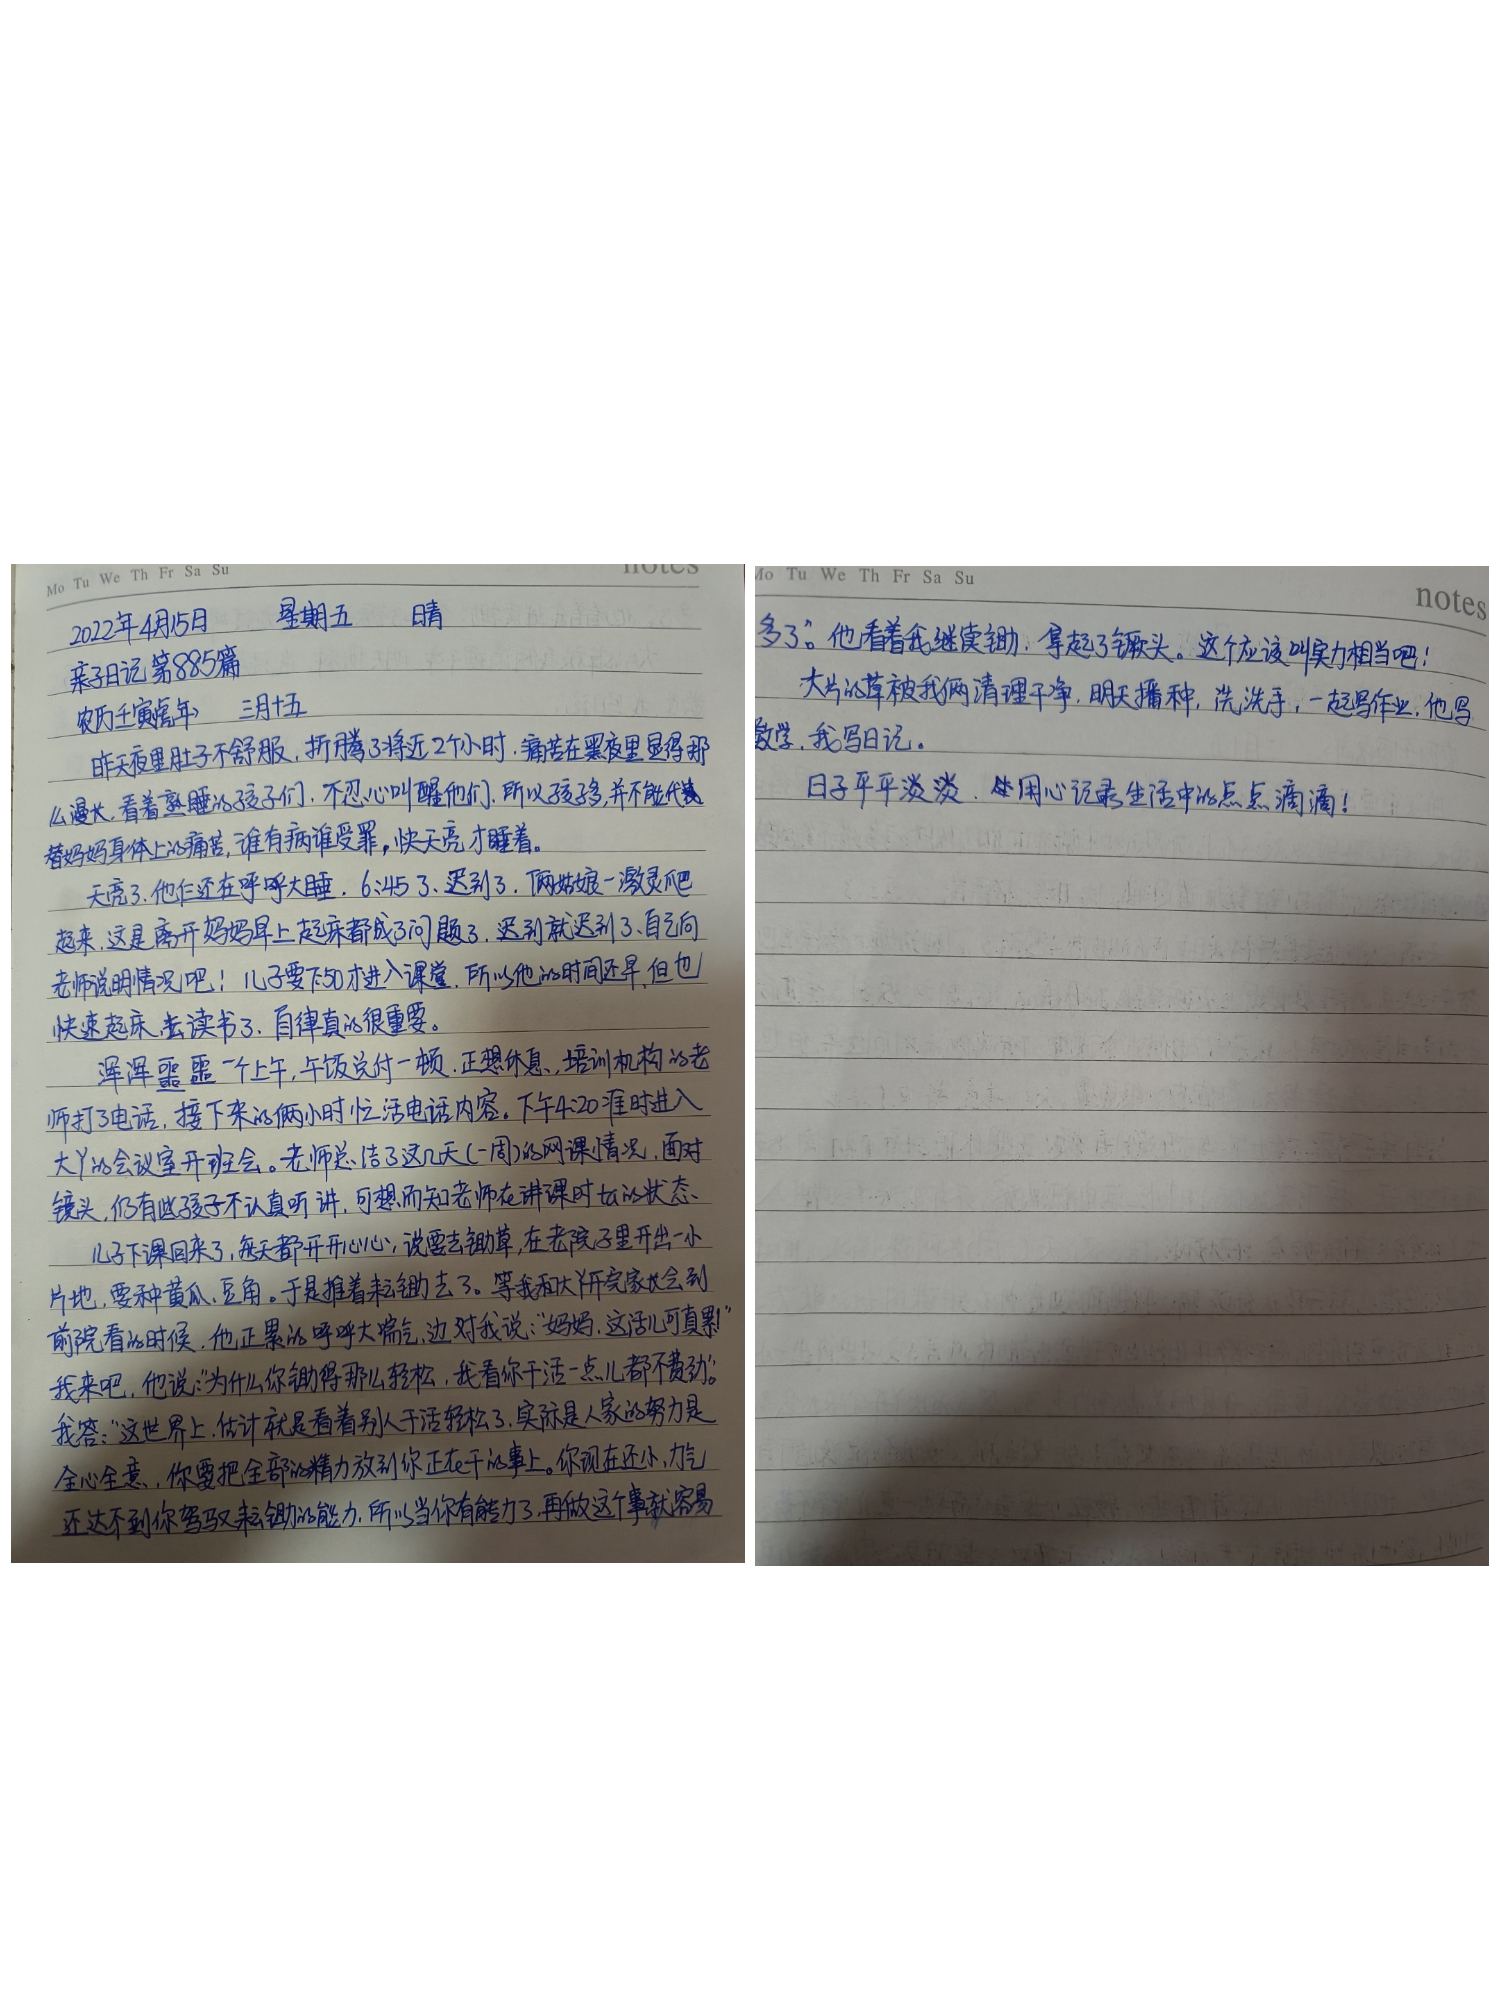 Mo Tu We Th Fr Sa Su notes
2022年4月15日 星期五 晴
亲子日记第885篇
农历壬寅虎年 三月十五
昨天夜里肚子不舒服，折腾了将近2个小时，痛苦在黑夜里显得那
么漫长，看着熟睡的孩子们，不忍心叫醒他们，所以孩子多，并不能代
替妈妈身体上的痛苦，谁有病谁受罪，快天亮才睡着。
天亮了，他仨还在呼呼大睡，6:45了，迟到了，俩姑娘一激灵爬
起来，这是离开妈妈早上起床都成了问题了，迟到就迟到了、自己向
老师说明情况吧！儿子要7:50才进入课堂，所以他的时间还早，但也
快速起床，去读书了，自律真的很重要。
浑浑噩噩一个上午，午饭兑付一顿，正想休息，培训机构的老
师打了电话，接下来的俩小时忙活电话内容。下午4:20准时进入
大丫的会议室开班会。老师总结了这几天(一周)的网课情况，面对
镜头，仍有些孩子不认真听讲，可想而知老师在讲课时ta的状态、
儿子下课回来了，每天都开开心心，说要去锄草，在老院子里开出一小
片地，要种黄瓜、豆角。于是推着耘锄去了。等我和大丫开完家长会到
前院看的时候，他正累的呼呼大喘气，边对我说：“妈妈，这活儿可真累！”
我来吧，他说：“为什么你锄得那么轻松，我看你干活一点儿都不费劲”。
我答：“这世界上，估计就是看着别人干活轻松了，实际是人家的努力是
全心全意，你要把全部的精力放到你正在干的事上。你现在还小，力气
还达不到你驾驭耘锄的能力，所以当你有能力了，再做这个事就容易
Mo Tu We Th Fr Sa Su notes
多了”。他看着我继续锄，拿起了镢头。这个应该叫实力相当吧！
大片的草被我俩清理干净，明天播种，洗洗手，一起写作业，他写
数学，我写日记。
日子平平淡淡，用心记录生活中的点点滴滴！